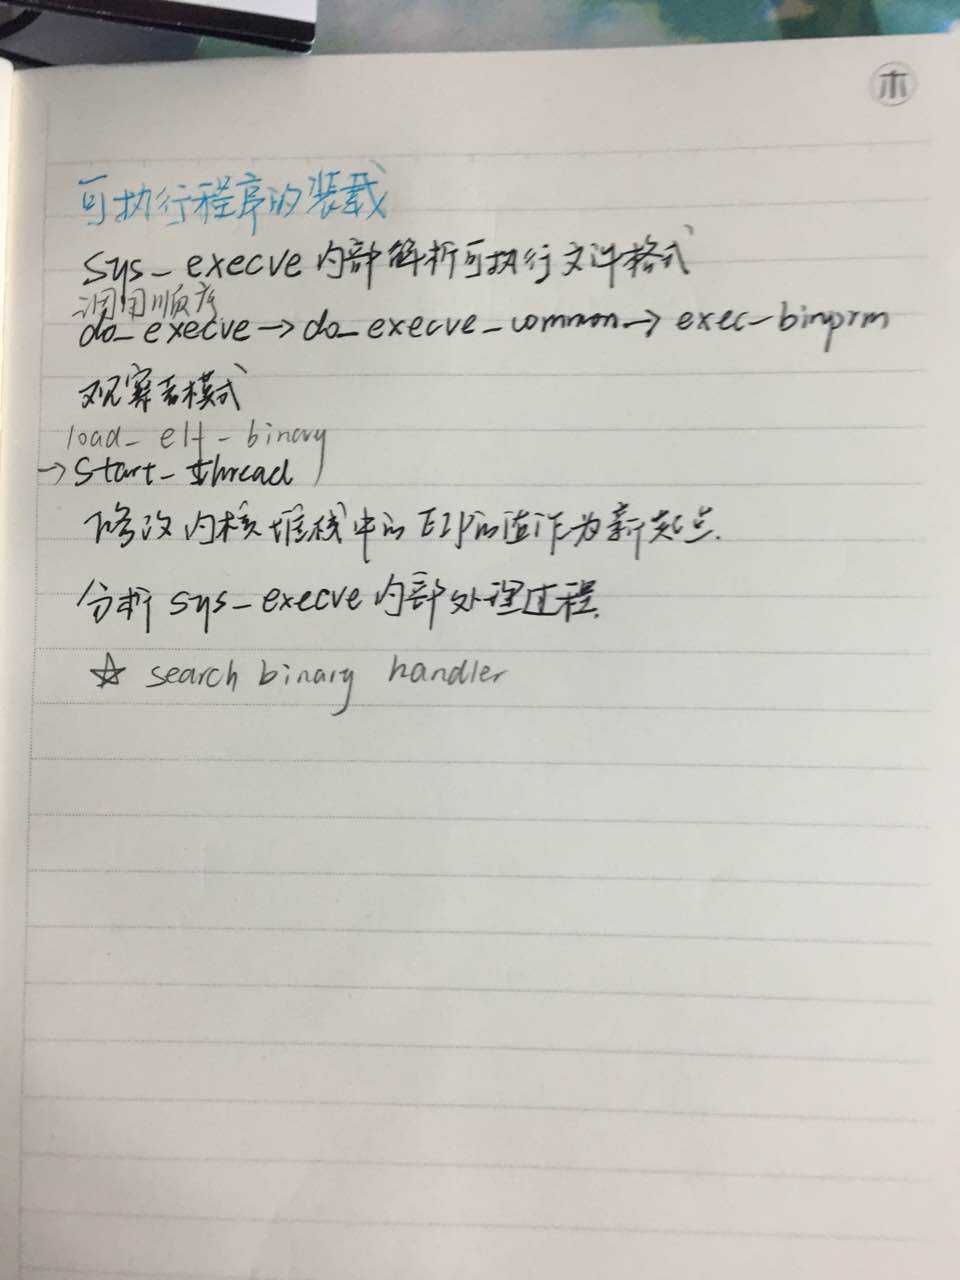 木
可执行程序的装载
sys_execve 内部解析可执行文件格式
调用顺序
do_execve→do_execve_common→exec_binprm
观察者模式
load_elf_binary
→start_thread
修改内核堆栈中的EIP的值作为新起点.
分析 sys_execve 内部处理过程.
☆ search binary handler